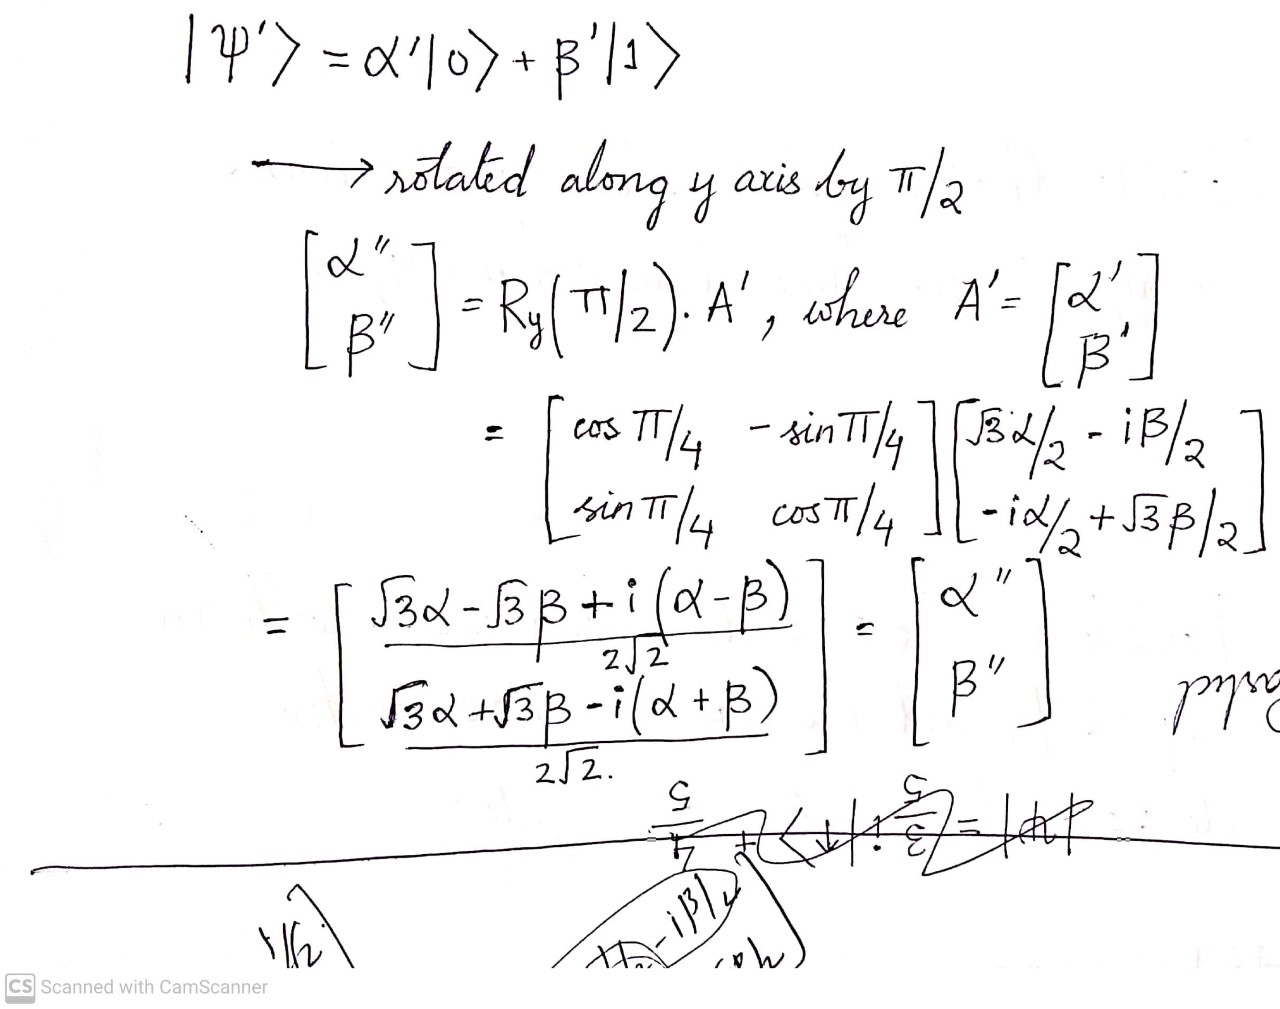 |ψ'⟩ = α'|0⟩ + β'|1⟩
⟶ rotated along y axis by π/2
[α'' β''] = Ry(π/2). A', where A' = [α' β']
= [cos π/4 -sin π/4; sin π/4 cos π/4] [√3α/2 - iβ/2; -iα/2 + √3β/2]
= [(√3α - √3β + i(α-β))/2√2; (√3α + √3β - i(α+β))/2√2.] = [α'' β'']
CS Scanned with CamScanner